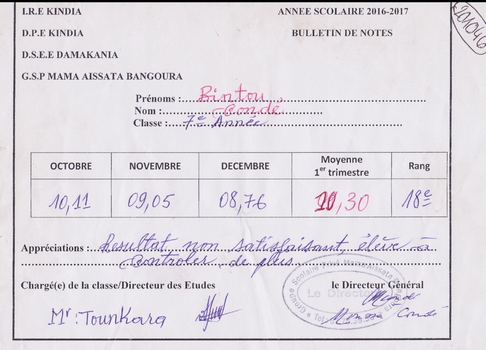 I.R.E KINDIA ANNEE SCOLAIRE 2016-2017
D.P.E KINDIA BULLETIN DE NOTES
D.S.E.E DAMAKANIA
G.S.P MAMA AISSATA BANGOURA
Prénoms : Bintou
Nom : Condé
Classe : 7e Année
OCTOBRE NOVEMBRE DECEMBRE Moyenne 1er trimestre Rang
10,11 09,05 08,76 10,30 18e
Appréciations : Resultat non satisfaisant, élève à
controler de plus
Chargé(e) de la classe/Directeur des Etudes le Directeur Général
Mr : Tounkara Condé